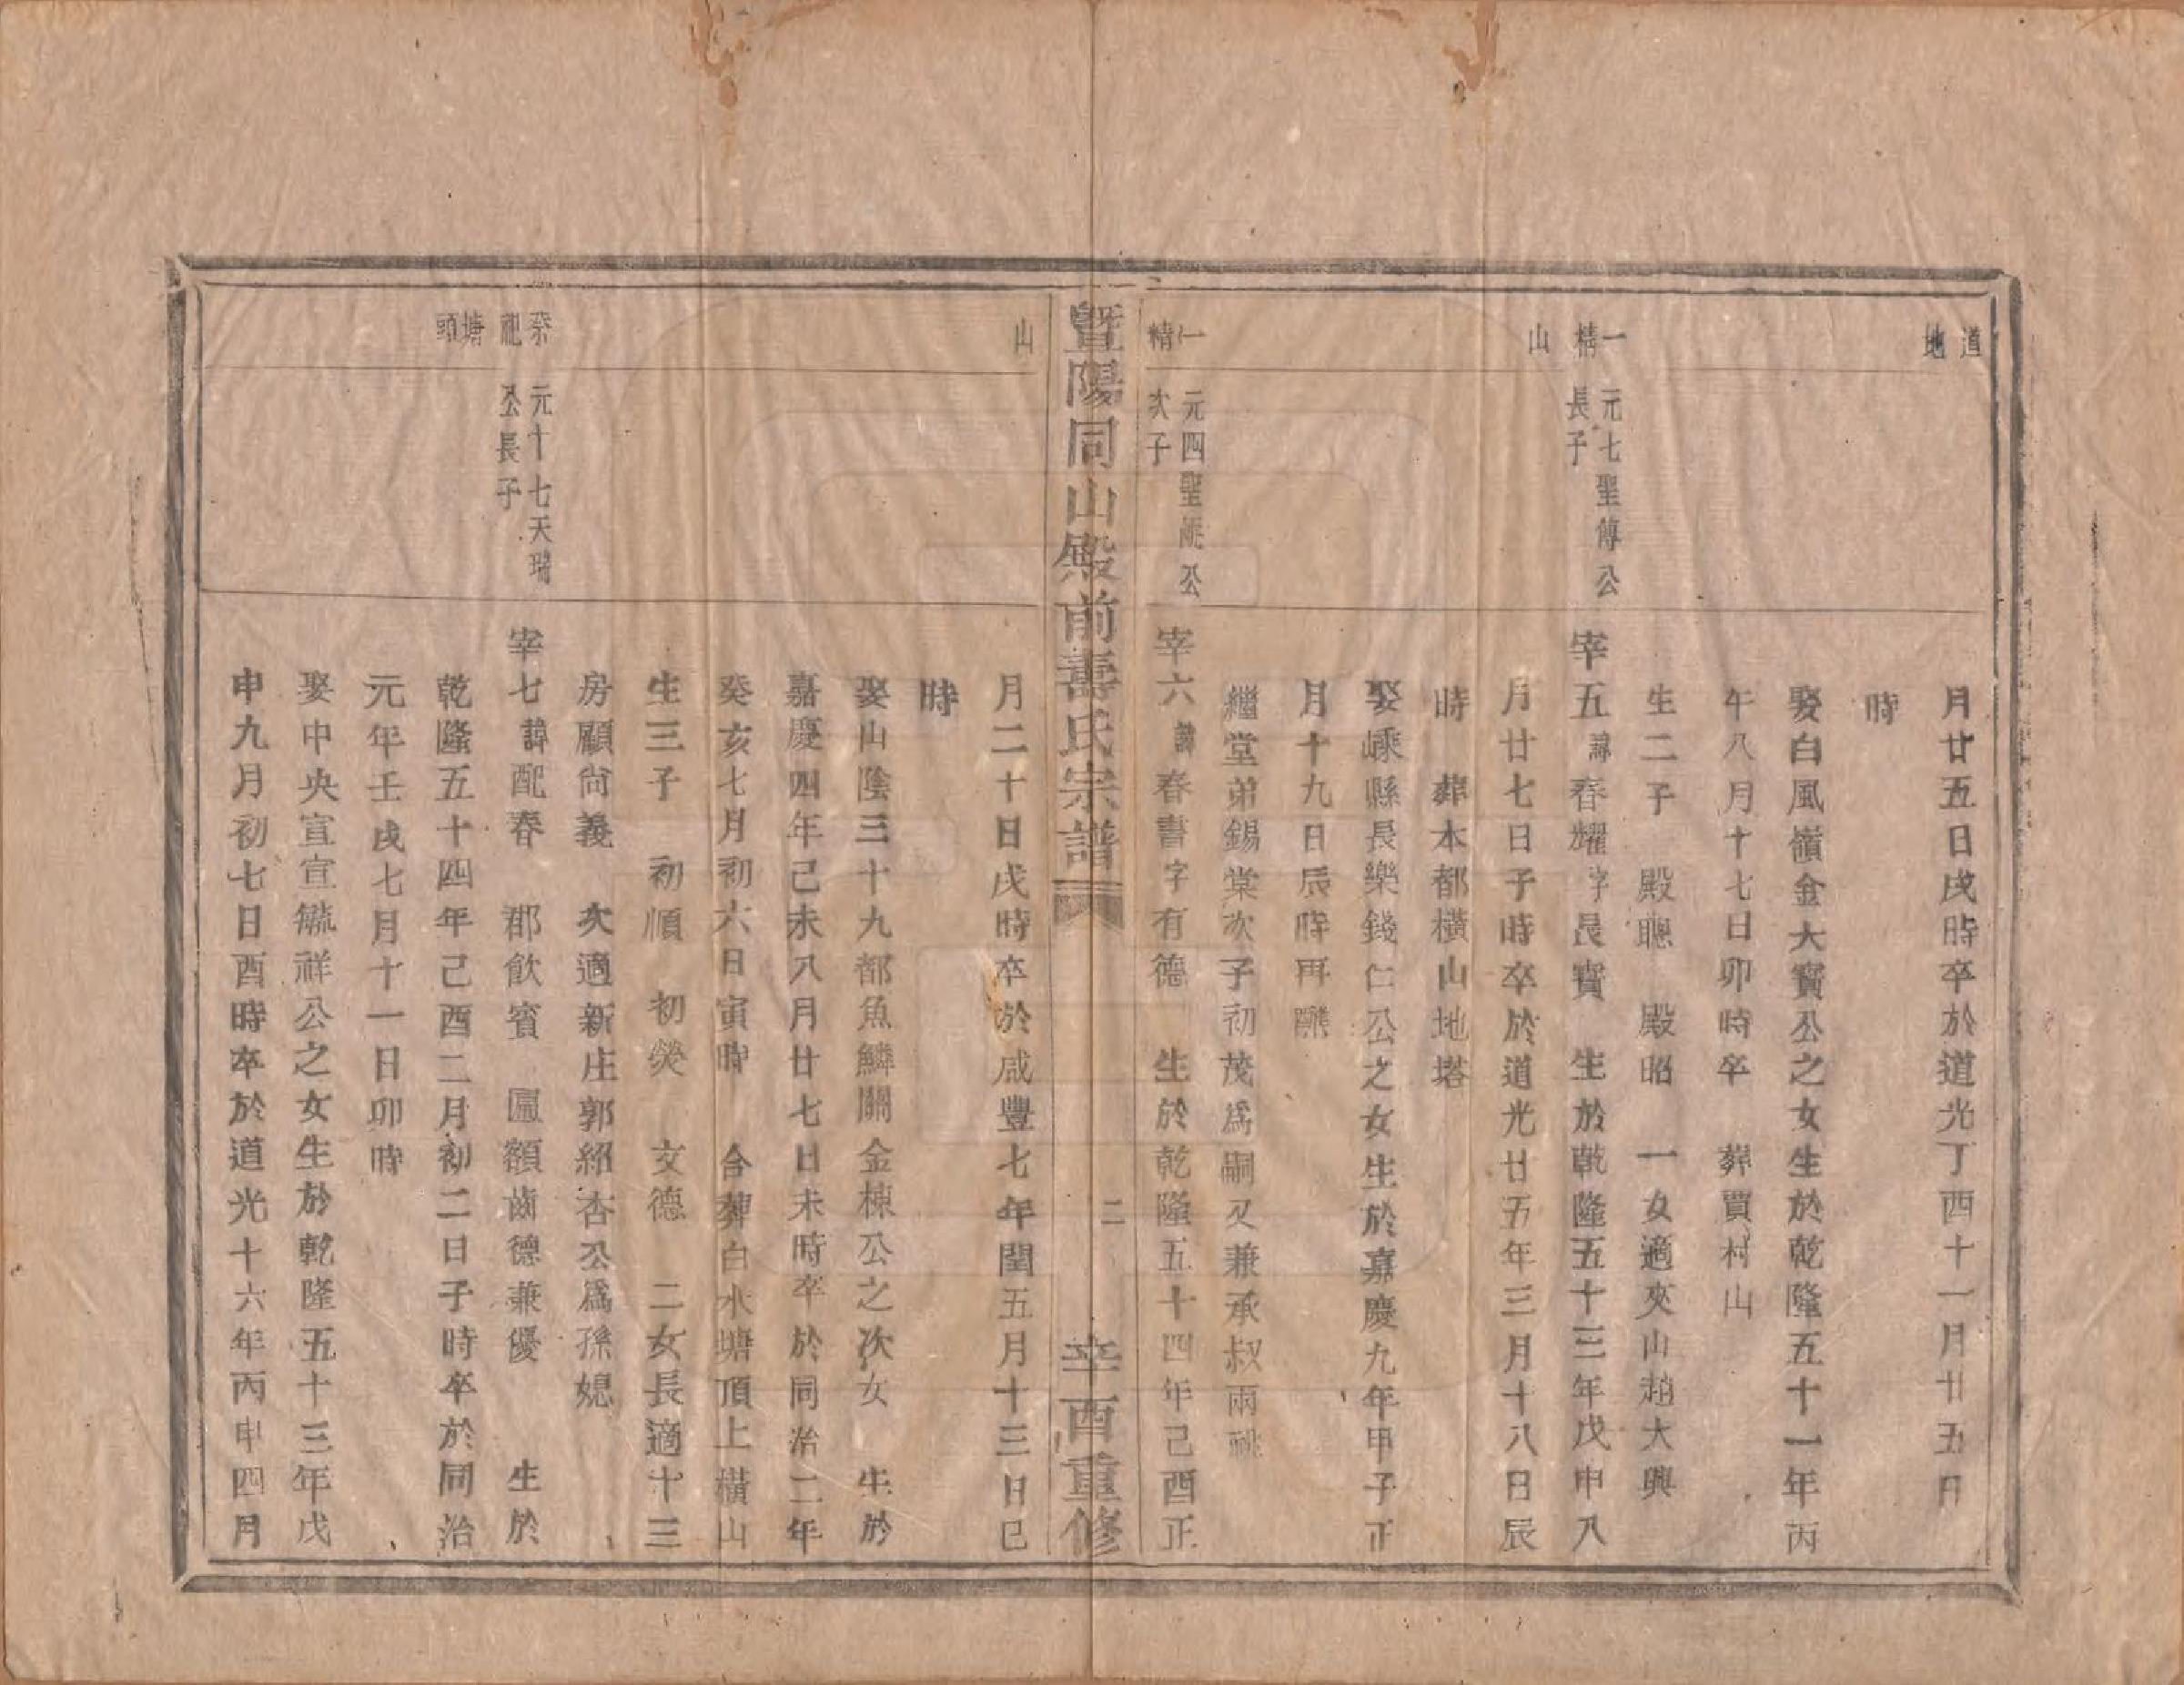 道地
月廿五日戌時卒於道光丁酉十一月廿五日
時
娶白風嶺金大寶公之女生於乾隆五十一年丙
午八月十七日卯時卒　葬賈村山
生二子　殿聰　殿昭　一女適夾山趙大興
一精山
元七聖傳公長子
宰五諱春耀字良寶　生於乾隆五十三年戊申八
月廿七日子時卒於道光廿五年三月十八日辰
時　葬本都橫山地塔
娶嵊縣長樂錢仁公之女生於嘉慶九年甲子正
月十九日辰時再醮
繼堂弟錫棠次子初茂爲嗣又兼承叔兩祧
一精
元四聖公次子
宰六諱春書字有德　生於乾隆五十四年己酉正
暨陽同山殿前壽氏宗譜
二
辛酉重修
山
月二十日戌時卒於咸豐七年閏五月十三日巳
時
娶山陰三十九都魚鱗關金棟公之次女　生於
嘉慶四年己未八月廿七日未時卒於同治二年
癸亥七月初六日寅時　合葬白水塘頂上橫山
生三子　初順　初熒　文德　二女長適十三
房顧尚義　次適新庄郭紹杏公爲孫媳
祀塘頭
元十七天瑞公長子
宰七諱配春　郡飲賓　匾額齒德兼優　生於
乾隆五十四年己酉二月初二日子時卒於同治
元年壬戌七月十一日卯時
娶中央宣宣毓祥公之女生於乾隆五十三年戊
申九月初七日酉時卒於道光十六年丙申四月